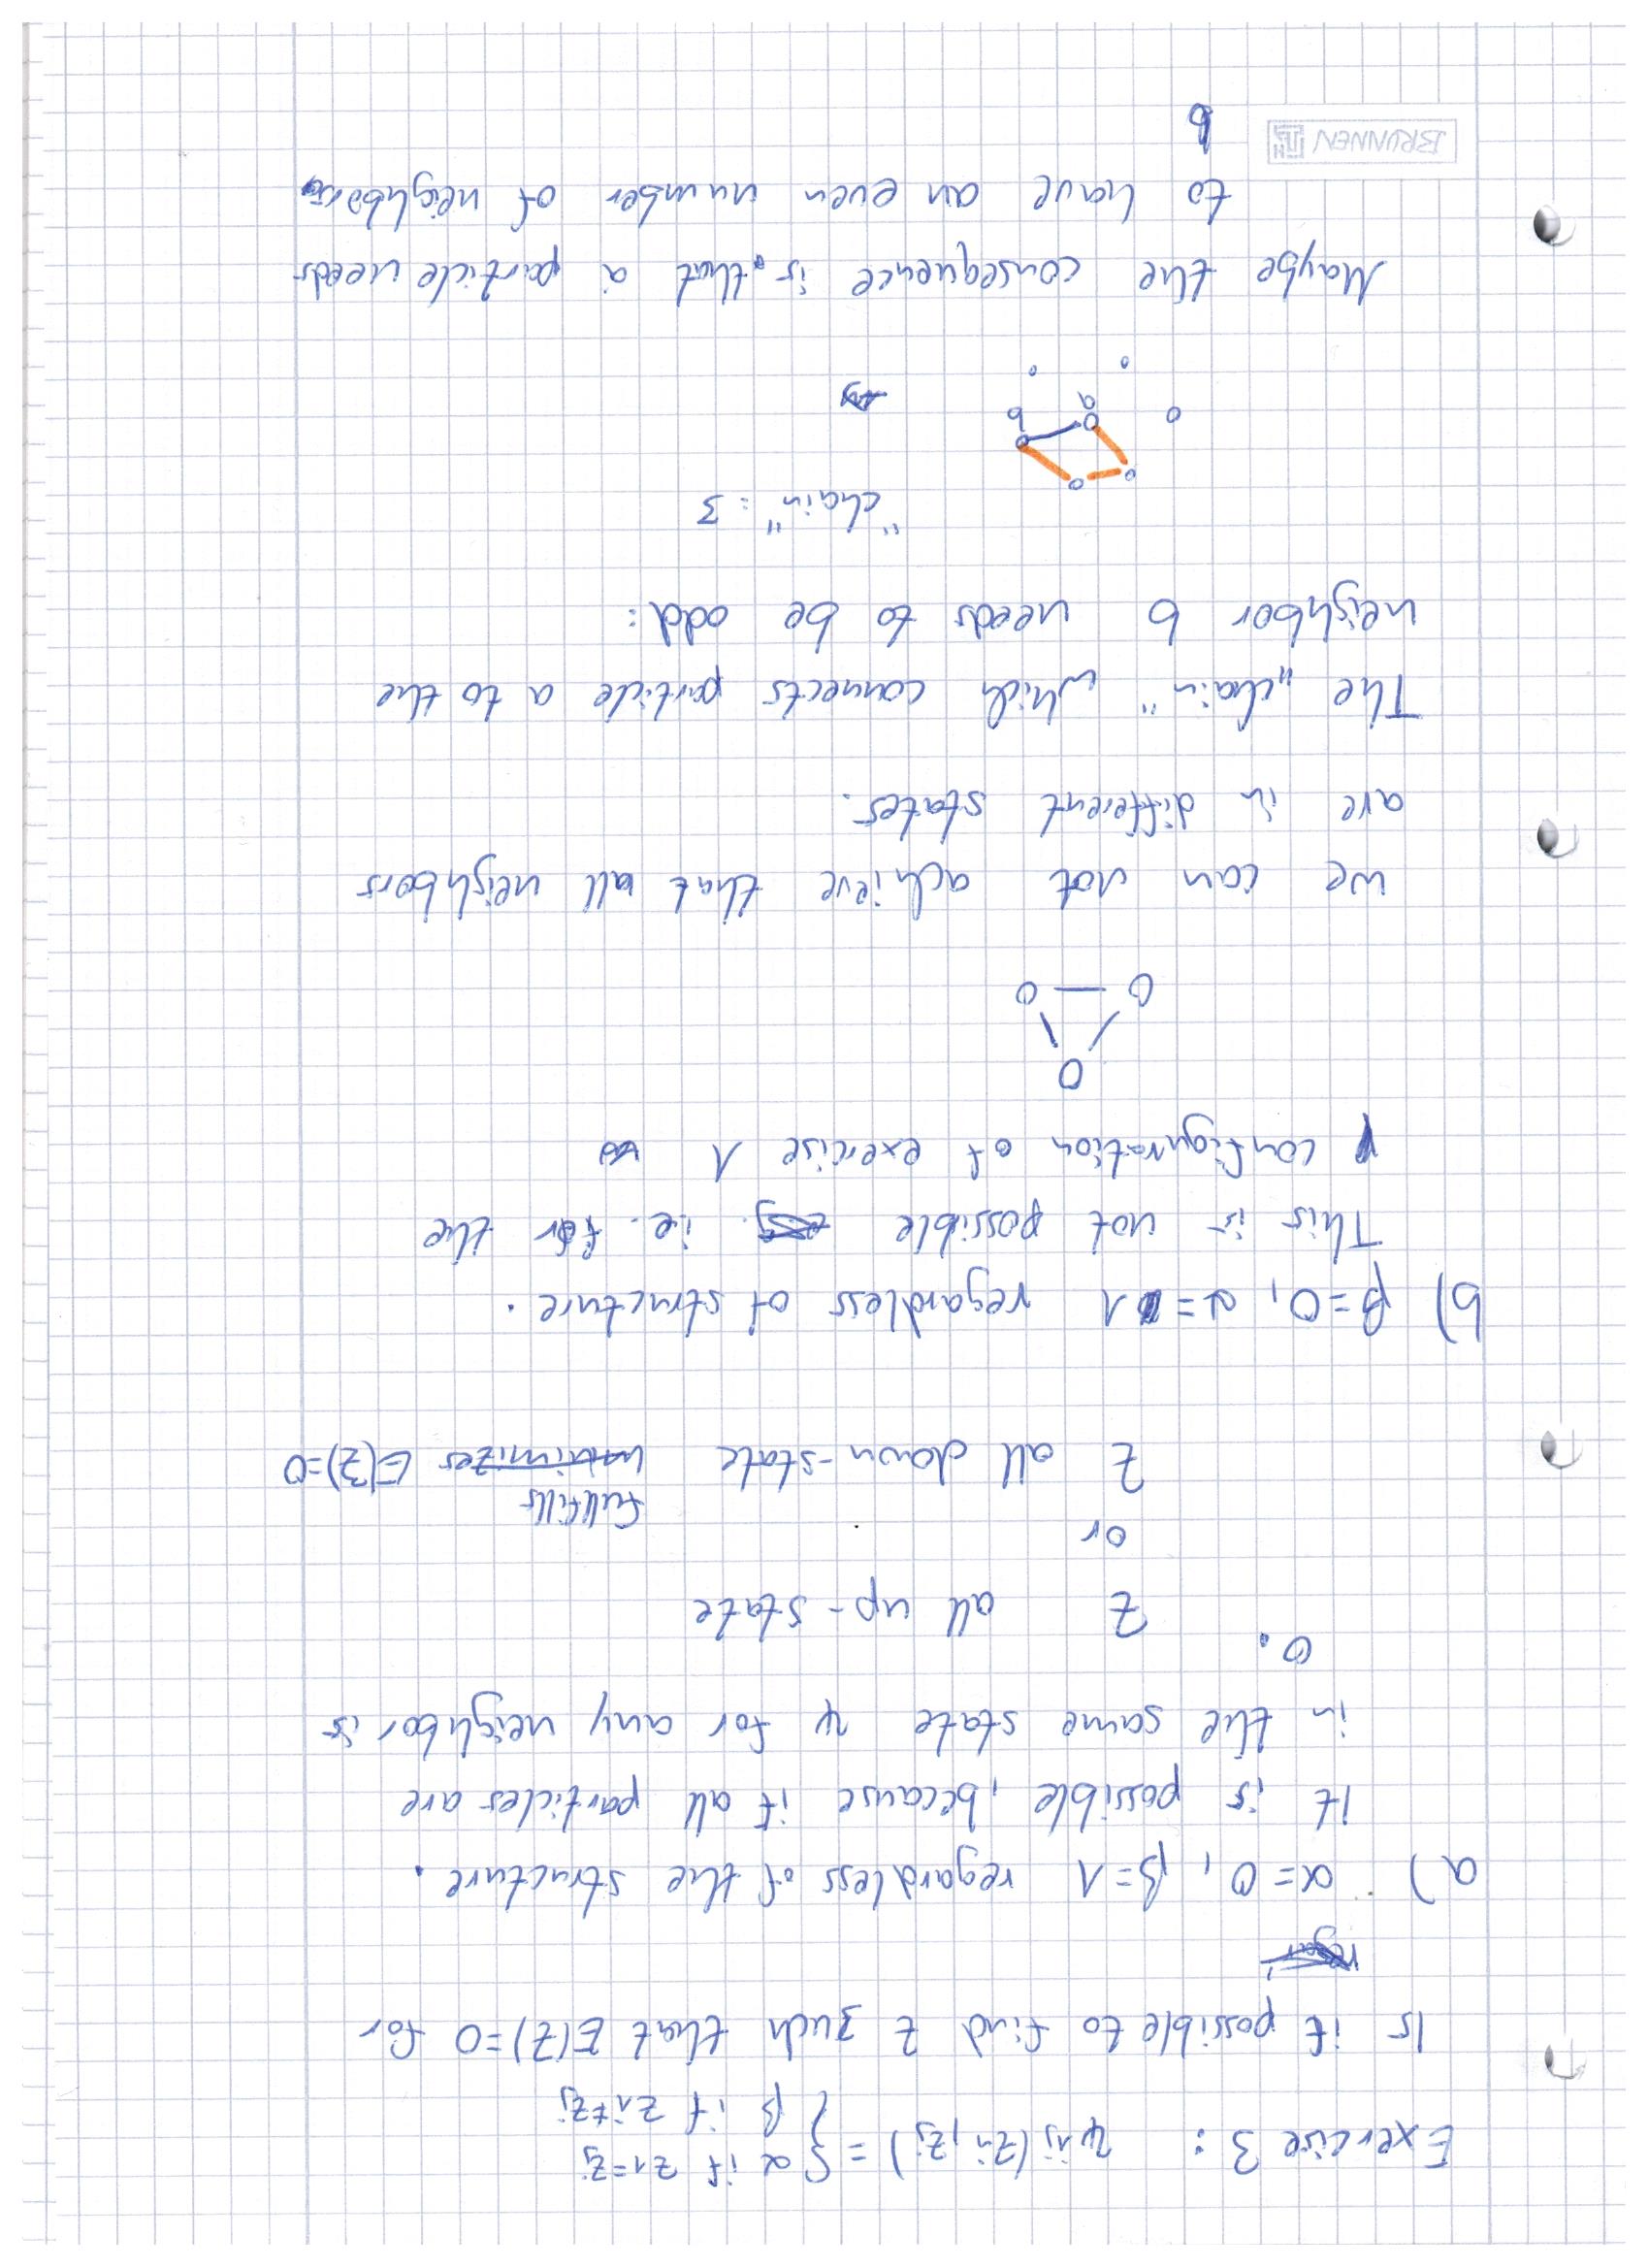 Exercise 3: ψij(zi,zj) = { α if z1=zj
β if zi≠zj
Is it possible to find Z such that E(Z)=0 for
regar
a) α=0, β=1 regardless of the structure.
It is possible, because if all particles are
in the same state ψ for any neighbor is
0.
Z all up-state
or
fullfills
Z all down-state minimizes E(Z)=0
b) β=0, α=1 regardless of structure.
This is not possible i.e. for the
configuration of exercise 1
O
O O
we can not achieve that all neighbors
are in different states.
The „chain" which connects particle a to the
neighbor b needs to be odd:
"chain": 3
a b
Maybe the consequence is, that a particle needs
to have an even number of neighbors
BRUNNEN
b